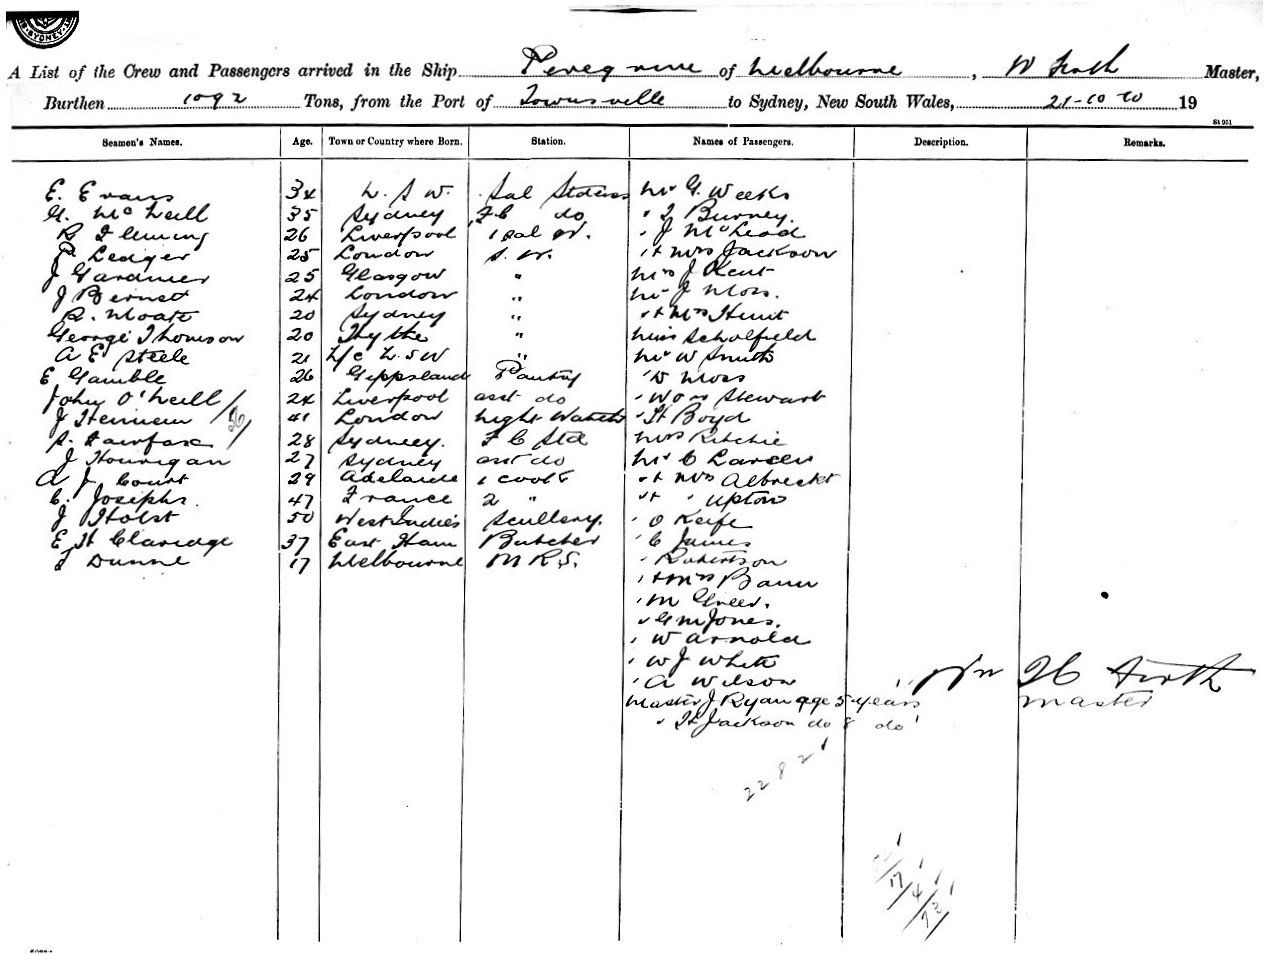 SYDNEY
A List of the Crew and Passengers arrived in the Ship Peregrine of Melbourne, W Firth Master,
Burthen 1092 Tons, from the Port of Townsville to Sydney, New South Wales, 21-10 19
St 951
Seamen's Names. Age. Town or Country where Born. Station. Names of Passengers. Description. Remarks.
E. Evans 34 N. S W. Sal Stdess Mr G. Weeks
G. McNeill 35 Sydney F C do " J Burney.
R Fleming 26 Liverpool 1 sal Wr. " J McLeod
P. Ledger 25 London S. Wr. " & Mrs Jackson
J Gardner 25 Glasgow " Mrs J Kent
J Bernett 24 London " Mr J Moss.
R. Moate 20 Sydney " " & Mrs Hunt
George Thomson 20 Hythe " Miss Scholfield
A E Steele 21 N S W " Mr W Smith
E Gamble 26 Gippsland Pantry " D Moss
John O'Neill 24 Liverpool asst do " Stewart
J 41 London Night Watch " H Boyd
S. Fairfax 28 Sydney. F C Std Mrs Ritchie
J Hourigan 27 Sydney asst do Mr C Larsen
A J Court 29 Adelaide 1 Cook " & Mrs Albrecht
C. Josephs. 47 France 2 " " & " Upton
J Holst 50 West Indies Scullery. " O Keefe
E H Claridge 37 East Ham Butcher " C James
J Dunne 17 Melbourne M R S. " Robertson
" & Mrs
" M Greer.
" G M Jones.
" W Arnold
" W J White
" A Wilson
Master J Ryan age 5 years
" H Jackson do 8 do
Wm H C Firth
Master
2282
17
4
73